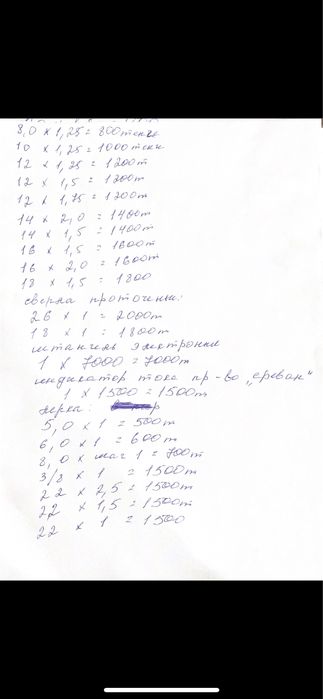 8,0 × 1,25 = 800тенге
10 × 1,25 = 1000тенге
12 × 1,25 = 1200т
12 × 1,5 = 1200т
12 × 1,75 = 1200т
14 × 2,0 = 1400т
14 × 1,5 = 1400т
16 × 1,5 = 1600т
16 × 2,0 = 1600т
18 × 1,5 = 1800
сверла проточены:
26 × 1 = 2000т
18 × 1 = 1800т
штангель электронные
1 × 7000 = 7000т
индикатор тока пр-во „ереван"
1 × 1500 = 1500т
лерка:
5,0 × 1 = 500т
6,0 × 1 = 600т
8,0 × шаг 1 = 700т
3/8 × 1 = 1500т
22 × 2,5 = 1500т
22 × 1,5 = 1500т
22 × 1 = 1500